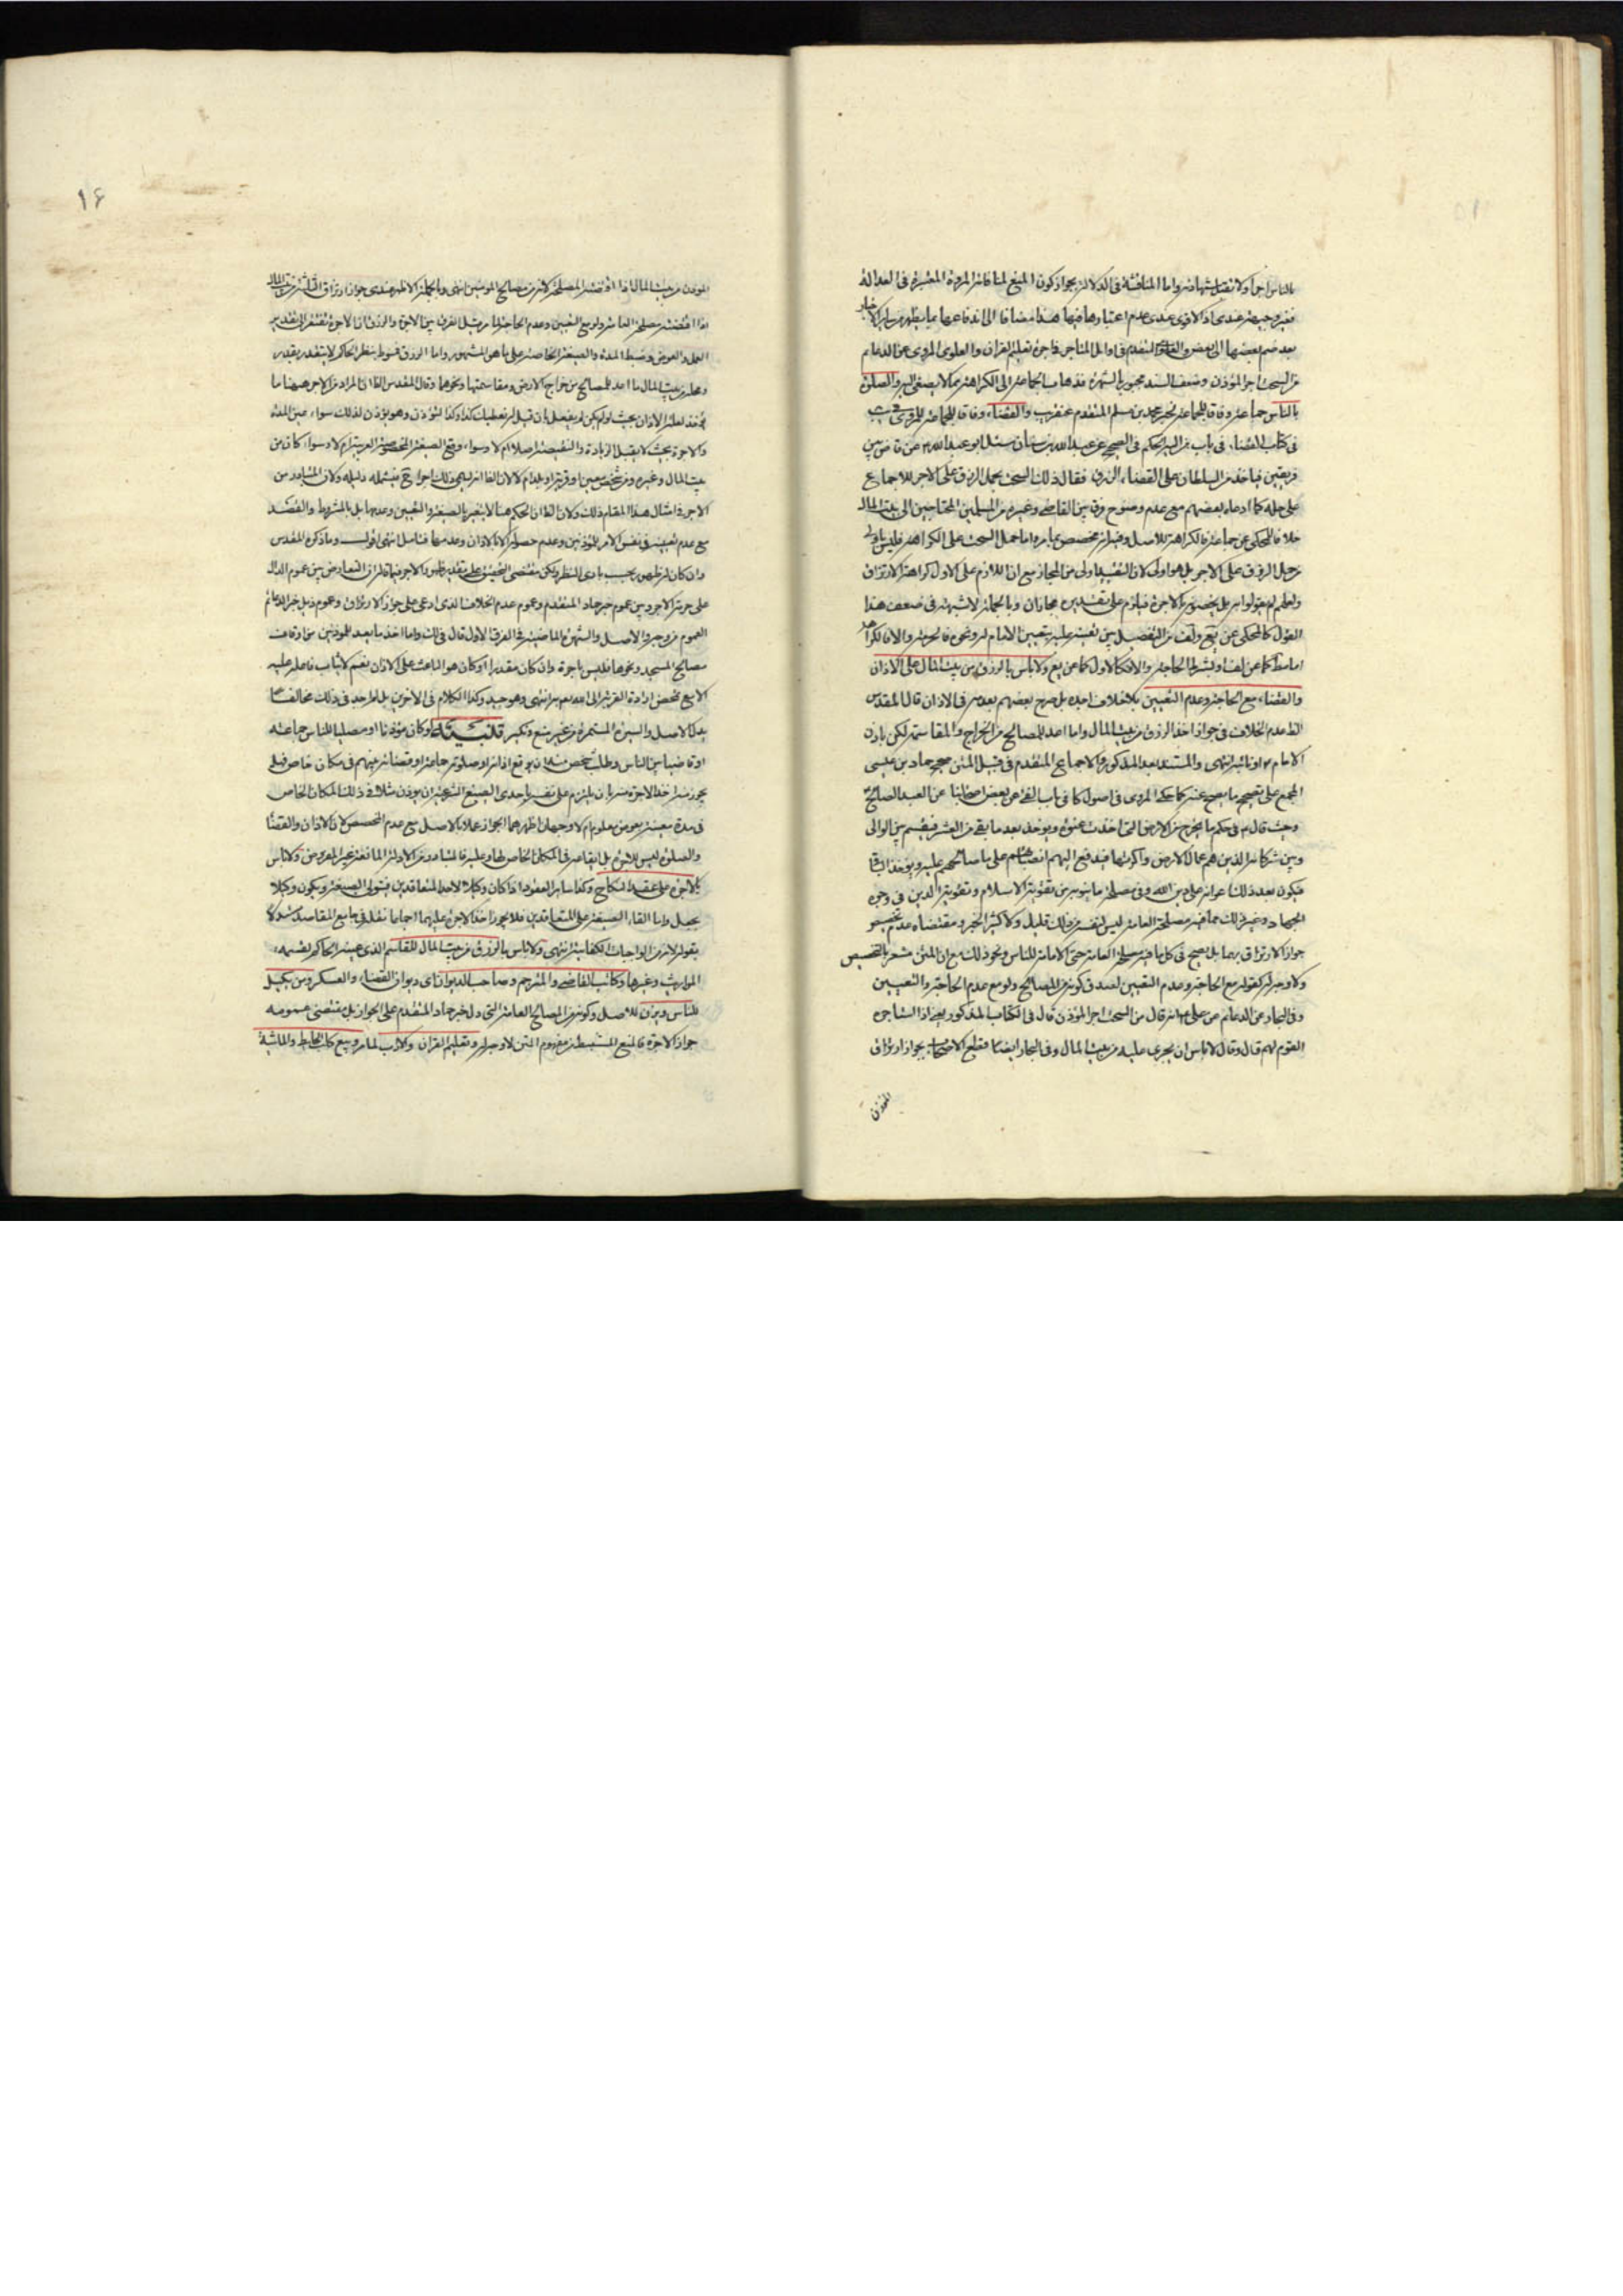 بالناس اجرا ولا تقبل شهادته واما المناقشة في الدلالة بجواز كون المنع لمنافاته المروة المعتبرة في العدالة
فغير وجيهة عندي اذ الاقوى عندي عدم اعتبارها فيها هذا مضافا الى اندفاعها بما يظهر من ساير الاخبار
بعد ضم بعضها الى بعض المتقدم في اوايل المتاجر في اجرة تعليم القران والعلوي المروي عن الدعائم
من السحت اجر المؤذن وضعف السند مجبور بالشهرة فذهاب جماعة الى الكراهة مما لا يصغى اليه والصلوة
بالناس جماعة وفاقا لجماعة لخبر محمد بن مسلم المتقدم عنقريب والقضاء وفاقا لجماعة للمروي
في كتاب القضاء في باب من اليه الحكم في الصحيح عن عبد الله بن سنان سئل ابو عبد الله ع عن قاض بين
قريتين ياخذ من السلطان على القضاء الرزق فقال ذلك السحت بحمل الرزق على الاجر للاجماع
على حله كما ادعاه بعضهم مع عدم وضوح فرق بين القاضي وغيره من المسلمين المحتاجين الى بيت المال
خلافا للمحكي عن جماعة فالكراهة للاصل وفيه انه مخصص بما مر واما حمل السحت على الكراهة فليس باولى
من حمل الرزق على الاجر بل هو اولى لان التقييد اولى من المجاز مع ان اللازم على الاول كراهة الارتزاق
ولعلهم لم يقولوا به بل بخصوص الاجرة فيلزم على تقديره مجازان وبالجملة لا شبهة في ضعف هذا
القول كالمحكي عن يع ولف من التفصيل بين تعينه عليه بتعيين الامام له ونحوه فالحرمة والا فالكراهة
اما مط كما عن لف او بشرط الحاجة والا فكالاول كما عن يع ولا باس بالرزق من بيت المال على الاذان
والقضاء مع الحاجة وعدم التعيين بلا خلاف اجده بل صرح بعضهم بعدمه في الاذان قال المقدس
الظ عدم الخلاف في جواز اخذ الرزق من بيت المال واما اعد للمصالح من الخراج والمقاسمة لكن باذن
الامام ع او نائبه انتهى والمستند بعد المذكور والاجماع المتقدم في قبيل المتن صحيح حماد بن عيسى
المجمع على تصحيح ما يصح عنه كما حكي المروي في اصول كافي باب الفئ عن بعض اصحابنا عن العبد الصالح
وحيث قال ع في حكم ما يخرج من الارض التي اخذت عنوة ويؤخذ بعد ما بقي من العشر فيقسم بين الوالي
وبين شركائه الذين هم عمال الارض واكرتها فيدفع اليهم انصبائهم على ما صالحهم عليه ويؤخذ الباقي
فيكون بعد ذلك اعوانه على دين الله وفي مصلحة ما ينوبه من تقوية الاسلام وتقوية الدين في وجوه
الجهاد وغير ذلك مما فيه مصلحة العامة ليس لنفسه من ذلك قليل ولا كثير الخبر ومقتضاه عدم تخصيص
جواز الارتزاق بهما بل يصح في كل ما فيه مصلحة العامة حتى الامامة للناس ونحو ذلك مع ان المتن مشعر بالتخصيص
ولا وجه له كقوله مع الحاجة وعدم التعيين لصدق كونه من المصالح ولو مع عدم الحاجة والتعيين
وفي البحار عن الدعائم عن علي ع انه قال من السحت اجر المؤذن قال في الكتاب المذكور يعني اذا استاجره
القوم لهم قال وقال لا باس ان يجرى عليه من بيت المال وفي البحار ايضا قطع الاصحاب بجواز ارتزاق
المؤذن
۱۶
المؤذن من بيت المال اذا اقتضته المصلحة لانه من مصالح المؤمنين انتهى وبالجملة الاظهر عندي جواز ارتزاق الثلثة من بيت المال
اذا اقتضته مصلحة العامة ولو مع التعيين وعدم الحاجة لما مر قيل الفرق بين الاجرة والرزق ان الاجرة تفتقر الى تقدير
العمل والعوض وضبط المدة والصيغة الخاصة على ما هو المشهور واما الرزق فمنوط بنظر الحاكم لا يتقدر بقدر
ومحله من بيت المال ما اعد للمصالح من خراج الارض ومقاسمتها ونحوها وقال المقدس الظ ان المراد من الاجر هيهنا ما
ياخذ لعلة الاذان بحيث لو لم يكن لم يفعل بان قيل له نعطيك كذا وكذا لتؤذن وهو يؤذن لذلك سواء عين المدة
والاجرة بحيث لا يقبل الزيادة والنقيصة اصلا ام لا وسواء وقع الصيغة المخصوصة العربية ام لا وسواء كان من
بيت المال وغيره ومن شخص معين او قرية او بلد ام لا لان الظ انه ليس في ذلك اجر فيشمله دليله ولان المتبادر من
الاجر في امثال هذا المقام ذلك ولان الظ ان الحكم هنا لا يتغير بالصيغة والتعيين وعدمهما بل بالشرط والقصد
مع عدم تعيينه في نفس الامر للمؤذنين وعدم حصوله الا بالاذان وعدمهما فتامل انتهى اقول وما ذكره المقدس
وان كان له ظهور بحسب بادي النظر ولكن مقتضى التحقيق على تقدير ظهور الاجر فيما قال من التعارض بين عموم الدال
على حرمة الاجر وبين عموم خبر حماد المتقدم وعموم عدم الخلاف الذي ادعى على جواز الارتزاق وعموم ذيل خبر الدعائم
العموم من وجه والاصل والشهرة الماضية في الفرق الاول قال في لك واما اخذ ما يعد للمؤذنين من اوقاف
مصالح المسجد ونحوها فليس باجرة وان كان مقدرا او كان هو الباعث على الاذان نعم لا يثاب فاعله عليه
الا مع تمحض ارادة القربة الى الله تعم به انتهى وهو جيد وكذا الكلام في الاخرين بل لم اجد في ذلك مخالفا
يدل الاصل والسيرة المستمرة من غير منع ونكير تنبيه لو كان مؤذنا او مصليا للناس جماعة
او قاضيا بين الناس وطلب شخص منه ان يوقع اذانه او صلوته جماعة او قضائه بينهم في مكان خاص فهل
يجوز منه اخذ الاجرة منه بان يلتزم على نفسه باحدى الصيغ الشرعية ان يؤذن مثلا في ذلك المكان الخاص
في مدة معينة بعوض معلوم ام لا وجهان اظهرهما الجواز عملا بالاصل مع عدم المخصص لان الاذان والقضاء
والصلوة ليس للاجرة بل ايقاعه في المكان الخاص لها وعليه فالمتبادر من الادلة المانعة غير المفروض ولا باس
بالاجرة على عقد النكاح وكذا ساير العقود اذا كان وكيلا لاحد المتعاقدين فيتولى الصيغة ويكون وكيلا
بجعل واما القاء الصيغة على المتعاقدين فلا يجوز اخذ الاجرة عليها اجماعا نقل في جامع المقاصد مستدلا
بقوله لانه من الواجبات الكفائية انتهى ولا باس بالرزق من بيت المال للقاسم الذي عينه الحاكم لقسمة
المواريث وغيرها وكاتب القاضي والمترجم وصاحب الديوان اي ديوان القضاء والعسكر ومن يكيل
للناس ويزن للاصل وكونه من المصالح العامة التي دل خبر حماد المتقدم على الجواز بل مقتضى عمومه
جواز الاجرة فالمنع المستنبط من مفهوم المتن لا وجه له وتعليم القران والاداب لما مر وبيع كلب الحايط والماشية